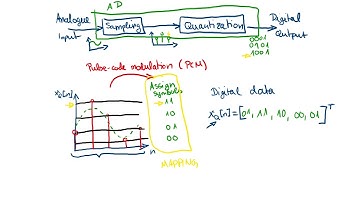 AD
Analogue Input
Sampling
Quantization
Digital Output
0001
0101
1001
Pulse-code modulation (PCM)
Assign symbols
XQ[n]
11
10
01
00
n
MAPPING
Digital data
XQ[n] = [01, 11, 10, 00, 01]ᵀ